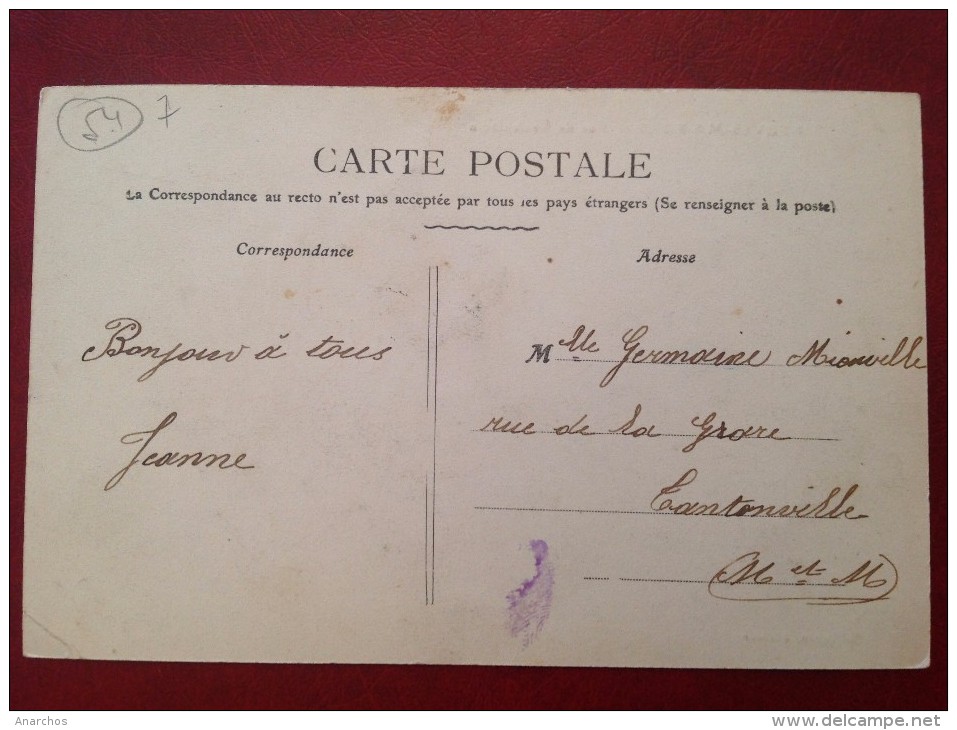 54 7
CARTE POSTALE
La Correspondance au recto n'est pas acceptée par tous les pays étrangers (Se renseigner à la poste)
Correspondance
Bonjour à tous
Jeanne
Adresse
Mlle Germaine Mionville
rue de la Gare
Tantonville
M et M
Anarchos
www.delcampe.net